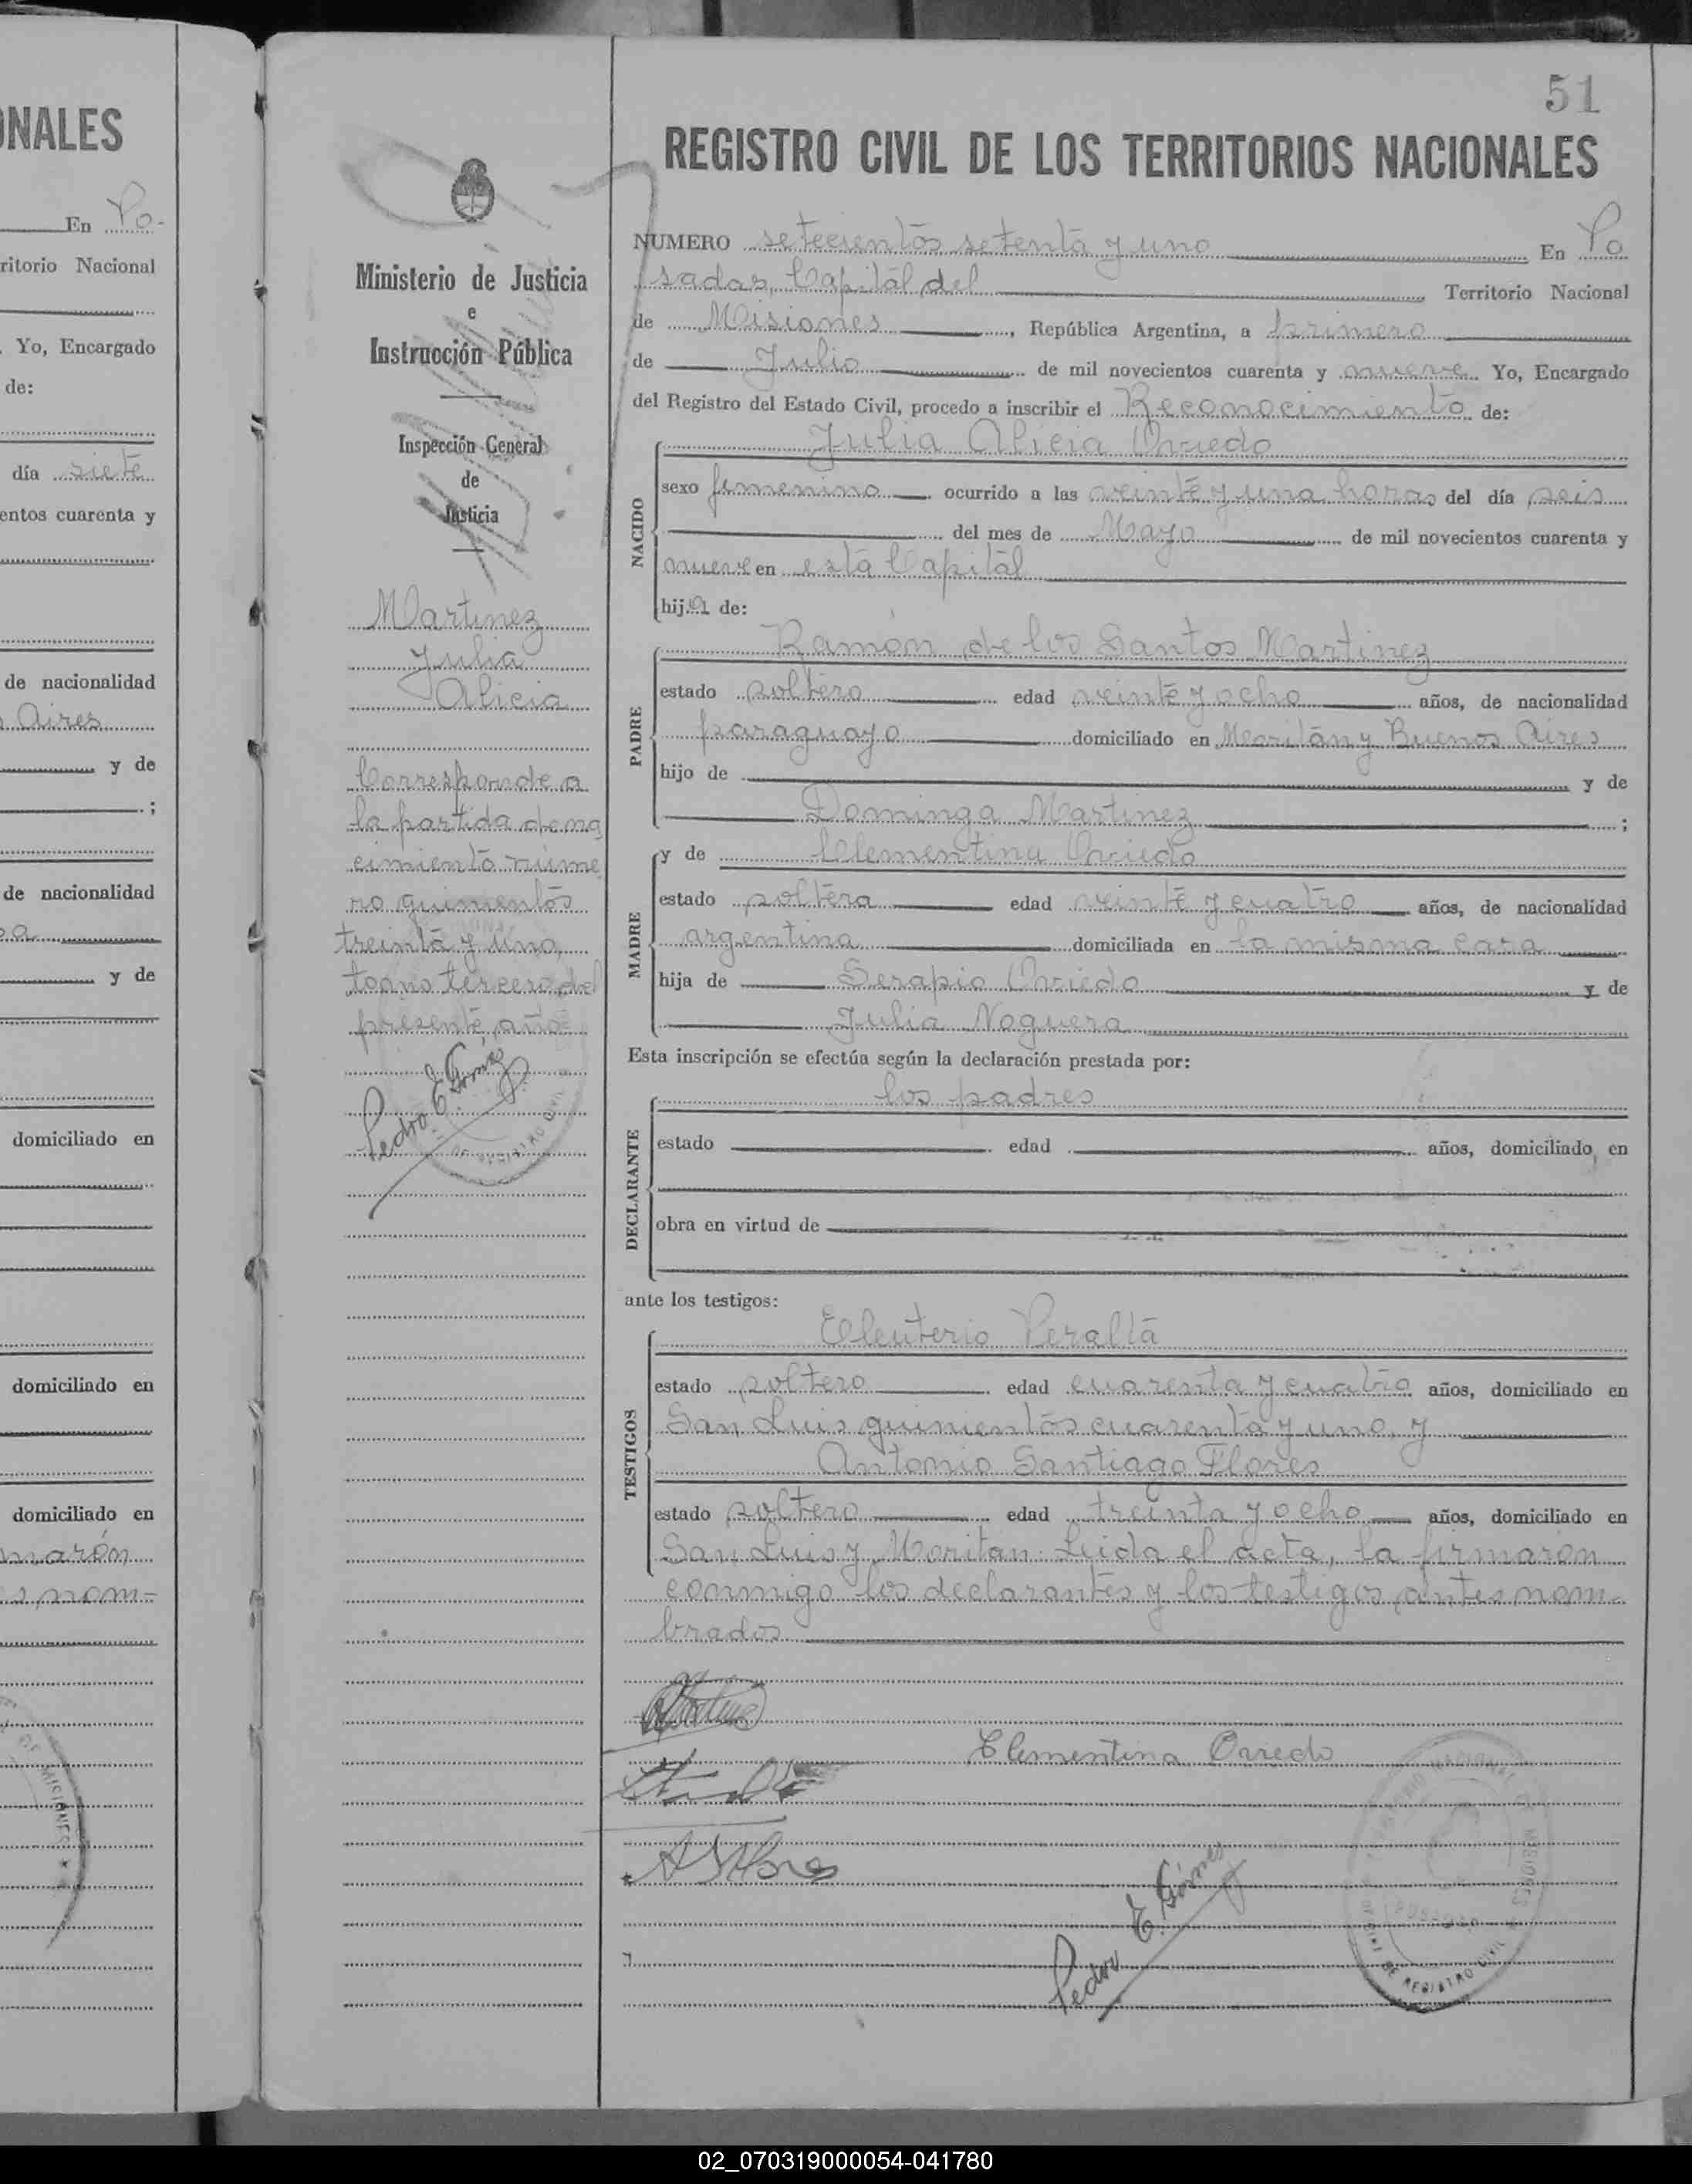 ONALES
En Po-
ritorio Nacional
. Yo, Encargado
de:
día siete
entos cuarenta y
de nacionalidad
Aires
y de
;
de nacionalidad
y de
domiciliado en
domiciliado en
domiciliado en
marón
s nom=
DE MISIONES
Ministerio de Justicia
e
Instrucción Pública
Inspección General
de
Justicia
Martinez
Julia
Alicia
Corresponde a
la partida de na
cimiento núme
ro quinientos
treinta y uno,
tomo tercero del
presente año
Pedro E. Gómez
51
REGISTRO CIVIL DE LOS TERRITORIOS NACIONALES
NUMERO setecientos setenta y uno En Po
sadas, Capital del Territorio Nacional
de Misiones, República Argentina, a primero
de Julio de mil novecientos cuarenta y nueve Yo, Encargado
del Registro del Estado Civil, procedo a inscribir el Reconocimiento de:
NACIDO
Julia Alicia Oviedo
sexo femenino ocurrido a las veinte y una horas del día seis
del mes de Mayo de mil novecientos cuarenta y
nueve en esta Capital
hija de:
PADRE
Ramón de los Santos Martinez
estado soltero edad veinte y ocho años, de nacionalidad
paraguayo domiciliado en Moritán y Buenos Aires
hijo de y de
Dominga Martinez ;
MADRE
y de Clementina Oviedo
estado soltera edad veinte y cuatro años, de nacionalidad
argentina domiciliada en la misma casa
hija de Serapio Oviedo y de
Julia Noguera
Esta inscripción se efectúa según la declaración prestada por:
DECLARANTE
los padres
estado edad años, domiciliado en
obra en virtud de
ante los testigos:
TESTIGOS
Eleuterio Peralta
estado soltero edad cuarenta y cuatro años, domiciliado en
San Luis quinientos cuarenta y uno, y
Antonio Santiago Flores
estado soltero edad treinta y ocho años, domiciliado en
San Luis y Moritan. Leida el acta, la firmaron
conmigo los declarantes y los testigos antes nom-
brados
Clementina Oviedo
A S Flores
Pedro E. Gómez
DE REGISTRO CIVIL
02_070319000054-041780